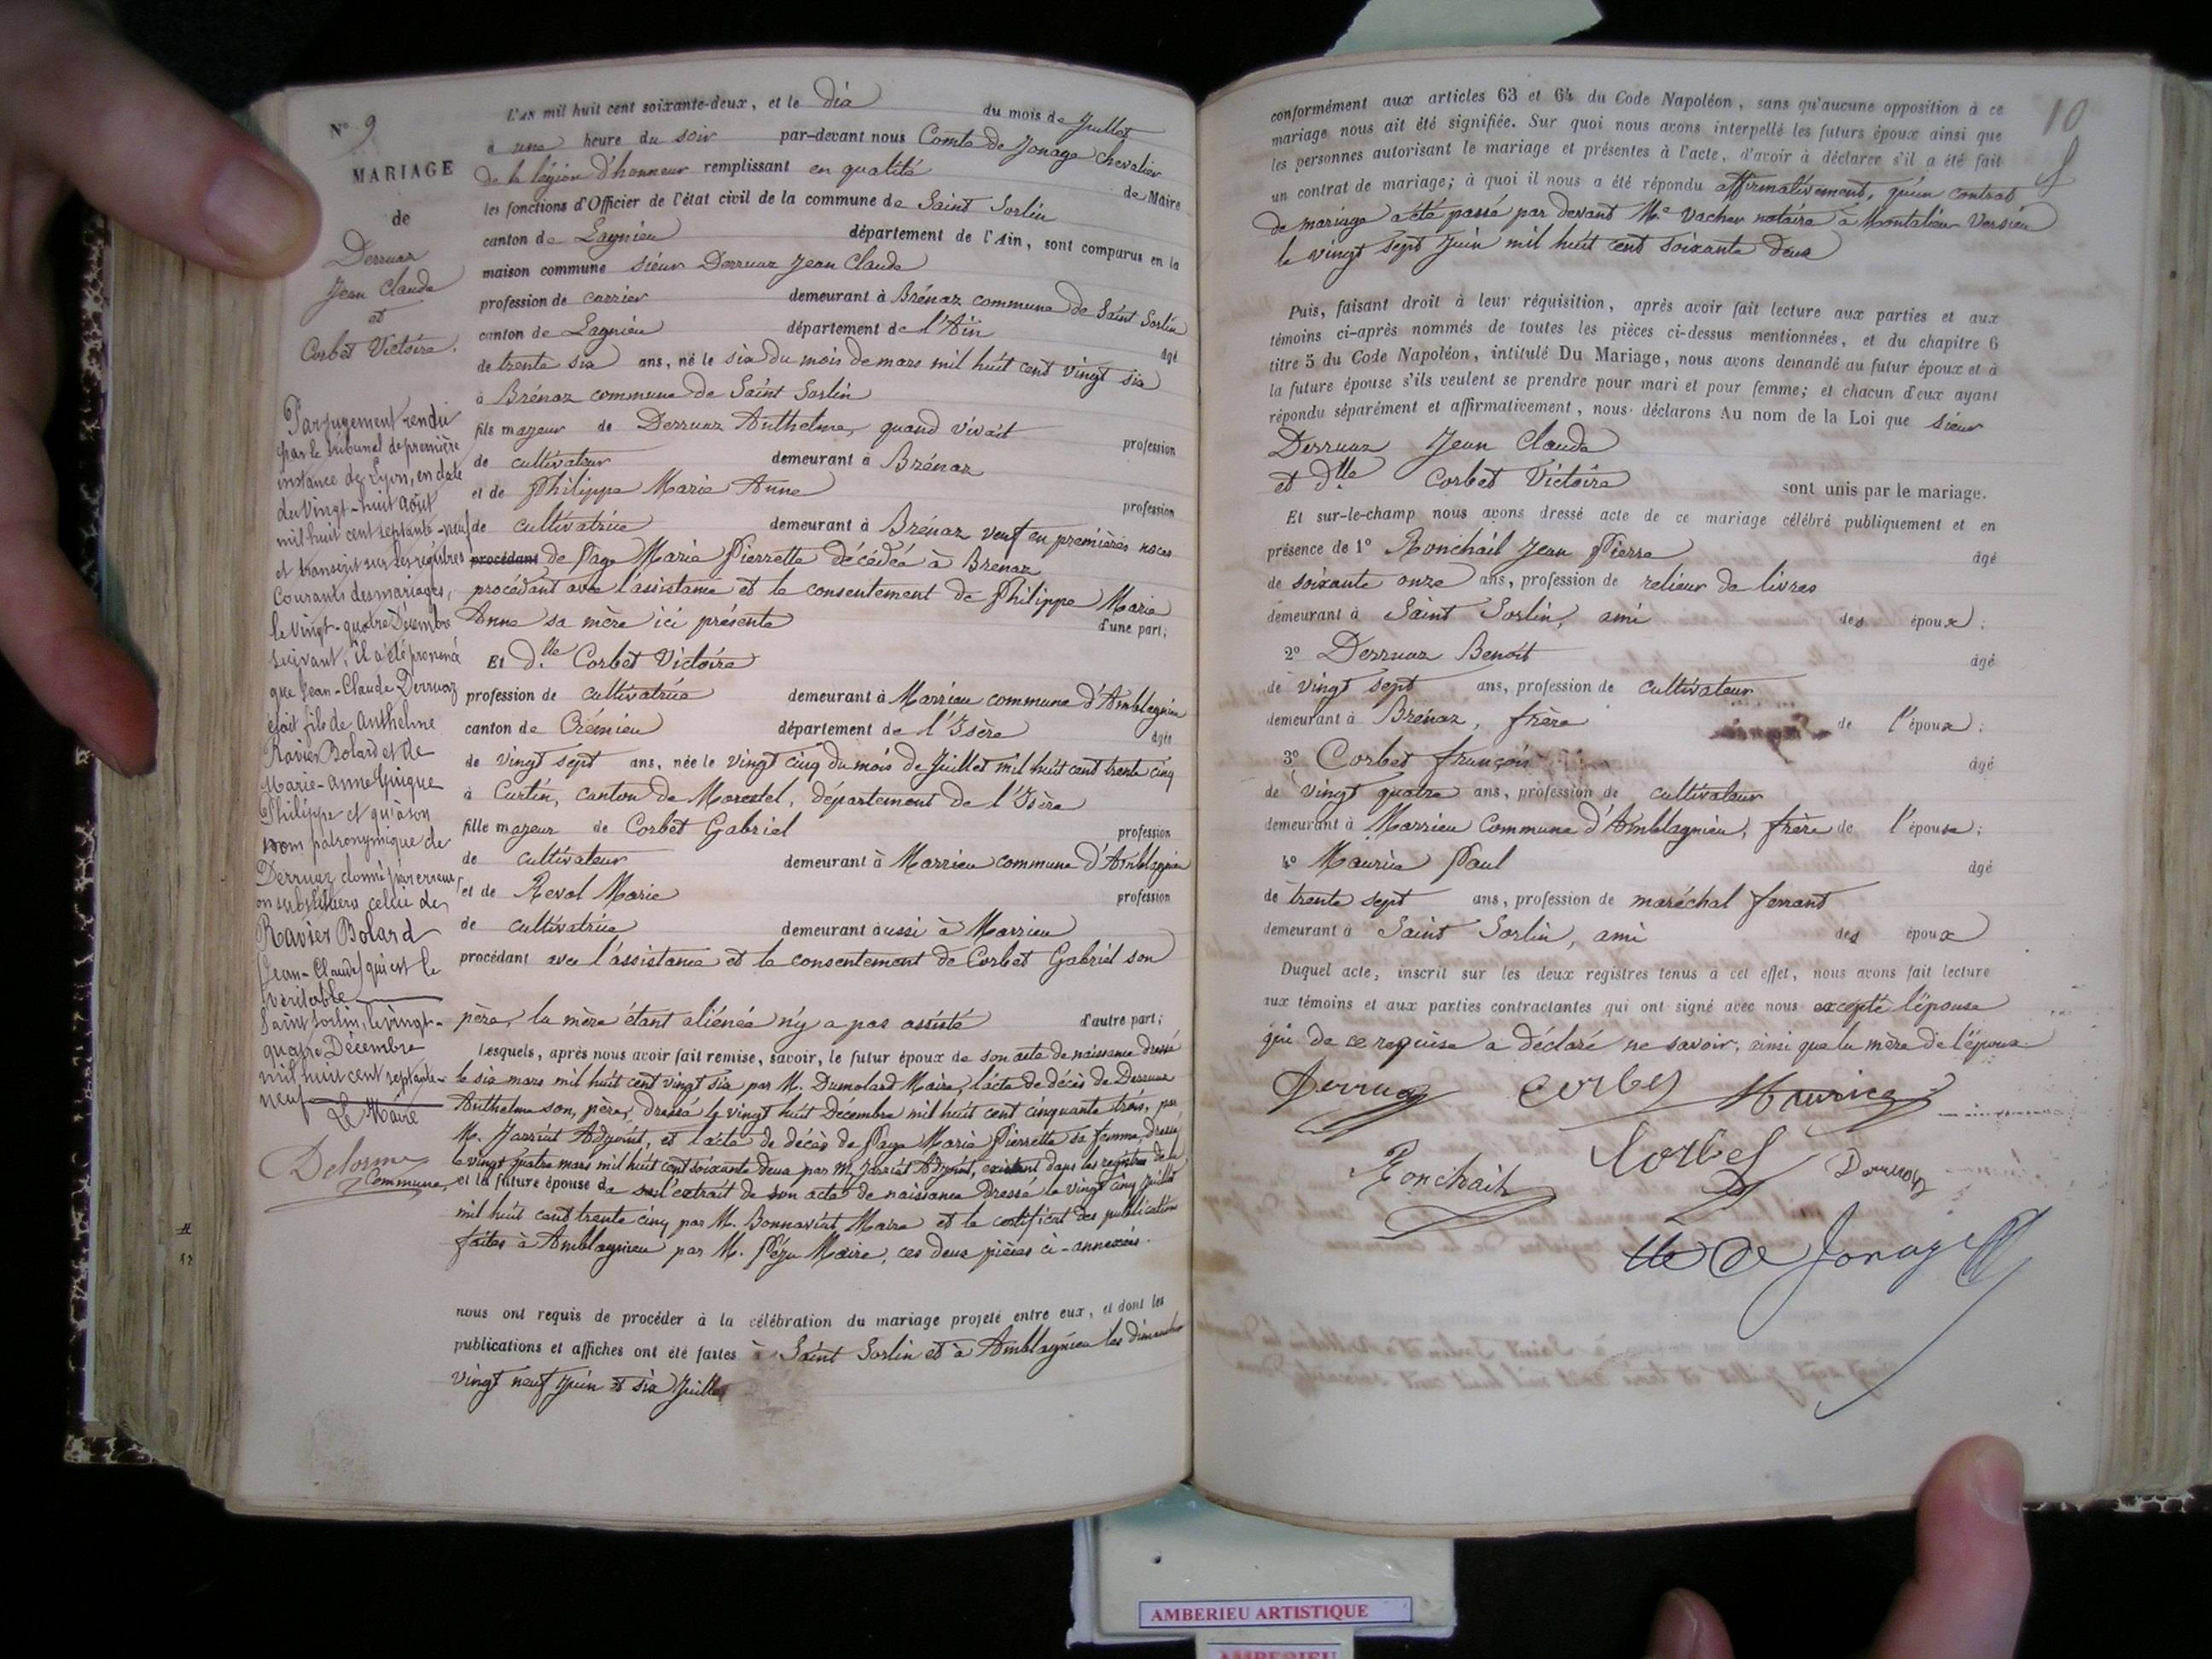 N° 9
MARIAGE
de
Derruaz
Jean Claude
et
Corbet Victoire.
Par jugement rendu
par le tribunal de première
instance de Lyon, en date
du Vingt-huit Août
mil huit cent septante-neuf
et transcrit sur les registres
Courants des mariages,
le Vingt-quatre Décembre
suivant, il a été prononcé
que Jean-Claude Derruaz
était fils de Anthelme
Ravier Bolard et de
Marie-Anne Gurique
Philippe et qu'à son
nom patronymique de
Derruaz donné par erreur,
on substituera celui de
Ravier Bolard
(Jean-Claude) qui est le
véritable
Saint Sorlin, le vingt-
quatre Décembre
mil huit cent septante-
neuf
Le Maire
Delorme
L'AN mil huit cent soixante-deux, et le dix du mois de Juillet
à une heure du soir par-devant nous Comte de Jonage chevalier
de la légion d'honneur remplissant en qualité de Maire
les fonctions d'Officier de l'état civil de la commune de Saint Sorlin
canton de Lagnieu département de l'Ain, sont comparus en la
maison commune sieur Derruaz Jean Claude
profession de carrier demeurant à Brénaz commune de Saint Sorlin
canton de Lagnieu département de l'Ain âgé
de trente six ans, né le six du mois de mars mil huit cent vingt six
à Brénaz commune de Saint Sorlin
fils mageur de Derruaz Anthelme, quand vivait profession
de cultivateur demeurant à Brénaz
et de Philippe Marie Anne profession
de cultivatrice demeurant à Brénaz veuf en premières noces
procédant de Page Marie Pierrette décédée à Brenaz
procédant avec l'assistance et le consentement de Philippe Marie
Anne sa mère ici présente d'une part;
Et Dlle Corbet Victoire
profession de cultivatrice demeurant à Marrieu commune d'Amblagnieu
canton de Crémieu département de l'Isère âgée
de vingt sept ans, née le vingt cinq du mois de Juillet mil huit cent trente cinq
à Curtin, canton de Morestel, département de l'Isère
fille mageur de Corbet Gabriel profession
de cultivateur demeurant à Marrieu commune d'Amblagnieu
et de Revol Marie profession
de cultivatrice demeurant aussi à Marrieu
procédant avec l'assistance et le consentement de Corbet Gabriel son
père, la mère étant aliénée n'y a pas assisté d'autre part;
Lesquels, après nous avoir fait remise, savoir, le futur époux de son acte de naissance dressé
le six mars mil huit cent vingt six par M. Dumolard Maire, l'acte de décès de Derruaz
Anthelme son père, dressé le vingt huit Décembre mil huit cent cinquante trois, par
M. Jarriat Adjoint, et l'acte de décès de Page Marie Pierrette sa femme, dressé
le vingt quatre mars mil huit cent soixante deux par M. Jarriat Adjoint, existant dans les registres de la
Commune, et la future épouse de l'extrait de son acte de naissance dressé le vingt cinq Juillet
mil huit cent trente cinq par M. Bonnaviat Maire et le certificat des publications
faites à Amblagnieu par M. Péju Maire, ces deux pièces ci-annexées.
nous ont requis de procéder à la célébration du mariage projeté entre eux, et dont les
publications et affiches ont été faites à Saint Sorlin et à Amblagnieu les dimanches
vingt neuf Juin et six Juillet
10
conformément aux articles 63 et 64 du Code Napoléon, sans qu'aucune opposition à ce
mariage nous ait été signifiée. Sur quoi nous avons interpellé les futurs époux ainsi que
les personnes autorisant le mariage et présentes à l'acte, d'avoir à déclarer s'il a été fait
un contrat de mariage; à quoi il nous a été répondu affirmativement, qu'un contrat
de mariage a été passé par devant Me Vacher notaire à Montalieu Versieu
le vingt sept Juin mil huit cent soixante deux
Puis, faisant droit à leur réquisition, après avoir fait lecture aux parties et aux
témoins ci-après nommés de toutes les pièces ci-dessus mentionnées, et du chapitre 6
titre 5 du Code Napoléon, intitulé Du Mariage, nous avons demandé au futur époux et à
la future épouse s'ils veulent se prendre pour mari et pour femme; et chacun d'eux ayant
répondu séparément et affirmativement, nous déclarons Au nom de la Loi que sieur
Derruaz Jean Claude
et Dlle Corbet Victoire sont unis par le mariage.
Et sur-le-champ nous avons dressé acte de ce mariage célébré publiquement et en
présence de 1° Ronchail Jean Pierre âgé
de soixante onze ans, profession de relieur de livres
demeurant à Saint Sorlin, ami des époux;
2° Derruaz Benoit âgé
de vingt sept ans, profession de cultivateur
demeurant à Brénaz, frère de l'époux;
3° Corbet françois âgé
de vingt quatre ans, profession de cultivateur
demeurant à Marrieu Commune d'Amblagnieu, frère de l'épouse;
4° Maurice Paul âgé
de trente sept ans, profession de maréchal ferrant
demeurant à Saint Sorlin, ami des époux
Duquel acte, inscrit sur les deux registres tenus à cet effet, nous avons fait lecture
aux témoins et aux parties contractantes qui ont signé avec nous excepté l'épouse
qui de ce requise a déclaré ne savoir, ainsi que la mère de l'époux
Derruaz Corbet Maurice
Ronchail Corbet Derruaz
Cte de Jonage
AMBERIEU ARTISTIQUE
AMBERIEU